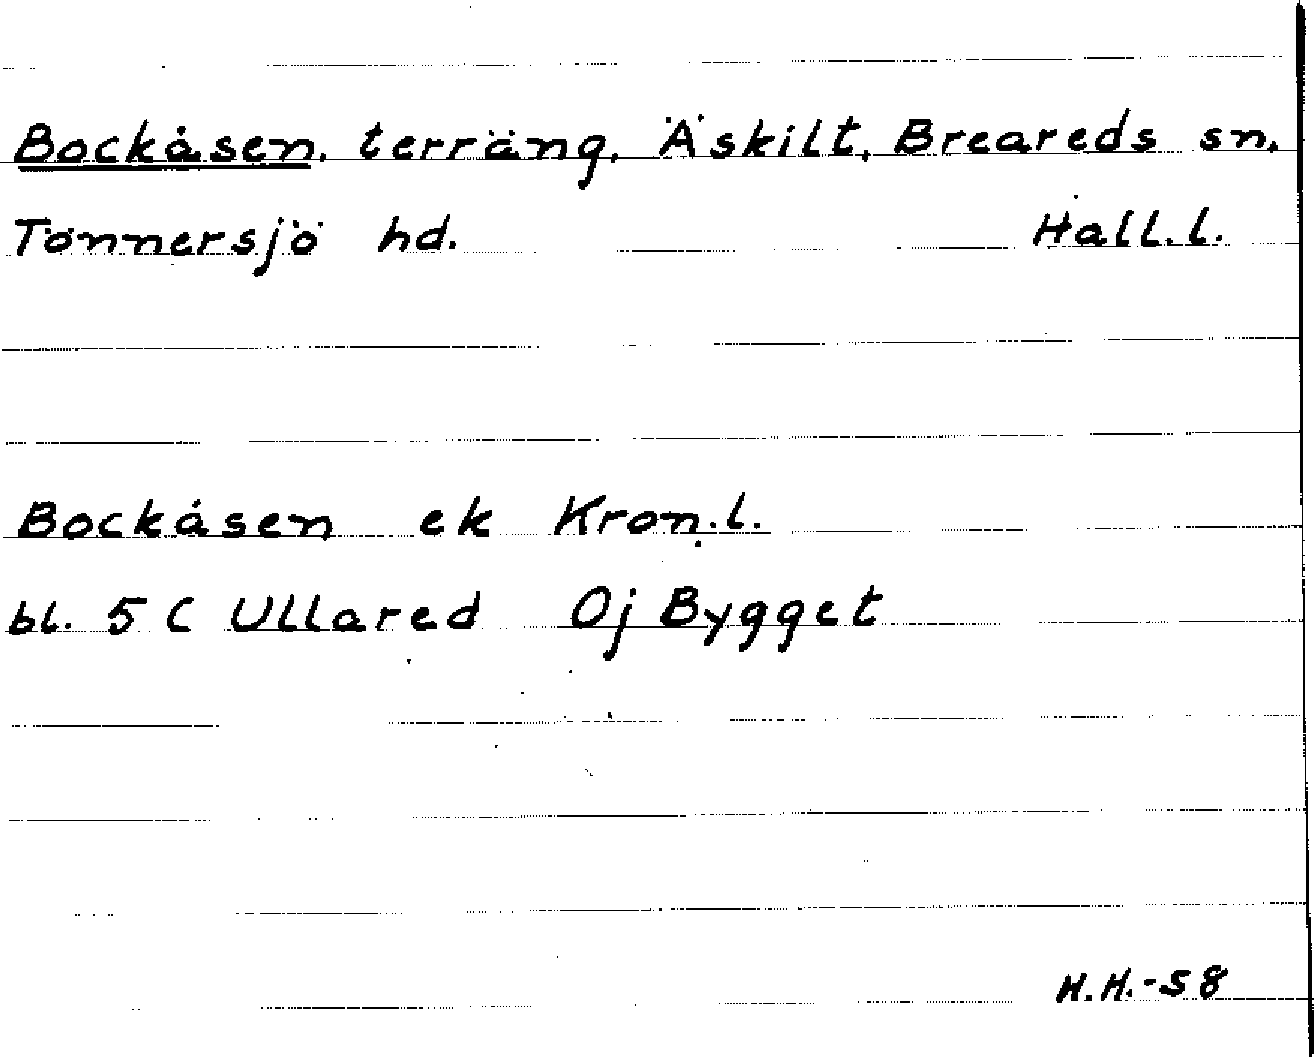 Bockåsen, terräng, Äskilt, Breareds sn,
Tönnersjö hd. Hall.l.
Bockåsen ek Kron.l.
bl. 5 C Ullared Oj Bygget
H.H.-58